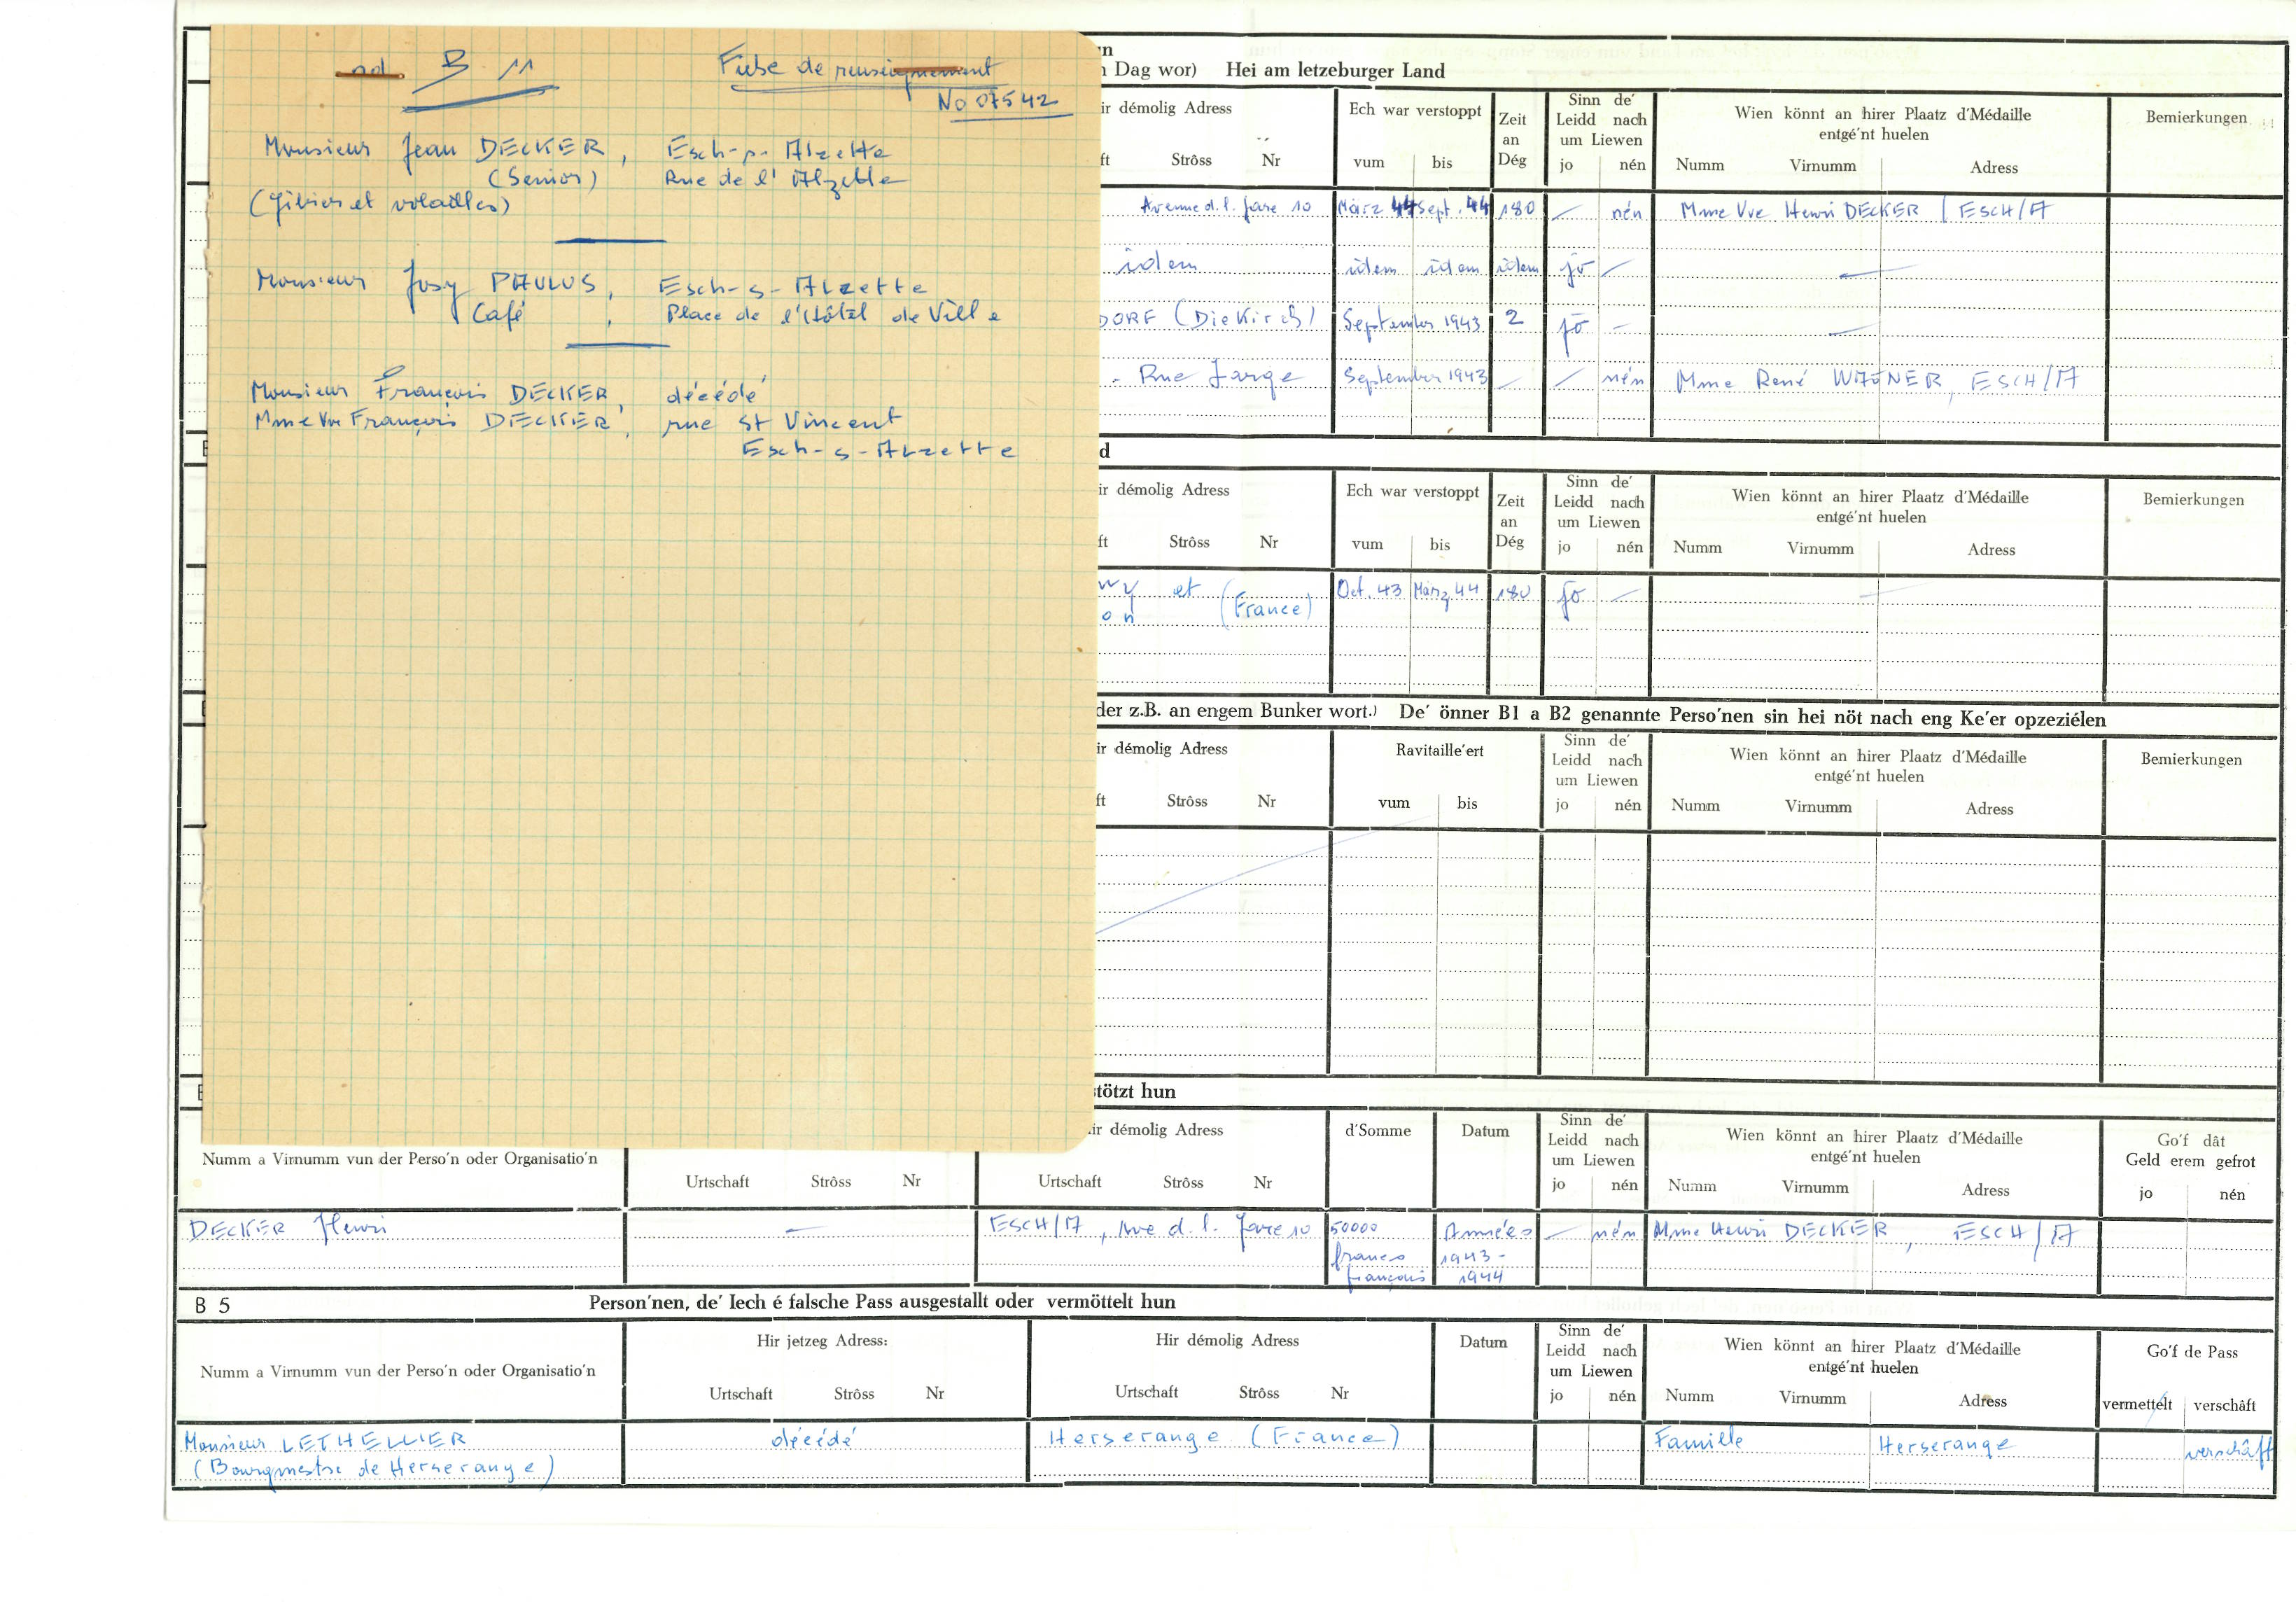 ad. B 11 Fiche de renseignement
No 07542
Monsieur Jean DECKER, Esch-s-Alzette
(Senior) Rue de l'Alzette
(Gibier et volailles)
Monsieur Josy PAULUS, Esch-s-Alzette
Café, Place de l'Hôtel de Ville
Monsieur François DECKER, décédé
Mme Vve François DECKER, rue St Vincent
Esch-s-Alzette
n Dag wor) Hei am letzeburger Land
ir démolig Adress Ech war verstoppt Zeit an Dég Sinn de' Leidd nach um Liewen Wien könnt an hirer Plaatz d'Médaille entgé'nt huelen Bemierkungen
ft Strôss Nr vum bis jo nén Numm Virnumm Adress
Avenue d. l. Gare 10 März 44 Sept. 44 180 — nén Mme Vve Henri DECKER ESCH/A
idem idem idem idem jo — —
DORF (Diekirch) September 1943 2 jo — —
- Rue Large September 1943 — — nén Mme René WAGNER, ESCH/A
d
ir démolig Adress Ech war verstoppt Zeit an Dég Sinn de' Leidd nach um Liewen Wien könnt an hirer Plaatz d'Médaille entgé'nt huelen Bemierkungen
ft Strôss Nr vum bis jo nén Numm Virnumm Adress
wy et (France) Oct. 43 März 44 180 jo — —
on
der z.B. an engem Bunker wort.) De' önner B1 a B2 genannte Perso'nen sin hei nöt nach eng Ke'er opzeziélen
ir démolig Adress Ravitaille'ert Sinn de' Leidd nach um Liewen Wien könnt an hirer Plaatz d'Médaille entgé'nt huelen Bemierkungen
ft Strôss Nr vum bis jo nén Numm Virnumm Adress
stötzt hun
ir démolig Adress d'Somme Datum Sinn de' Leidd nach um Liewen Wien könnt an hirer Plaatz d'Médaille entgé'nt huelen Go'f dât Geld erem gefrot
Numm a Virnumm vun der Perso'n oder Organisatio'n Urtschaft Strôss Nr Urtschaft Strôss Nr jo nén Numm Virnumm Adress jo nén
DECKER Henri — ESCH/A, Ave d. l. Gare 10 50000 Années — nén Mme Henri DECKER, ESCH/A
francs 1943-
français 1944
B 5 Person'nen, de' Iech é falsche Pass ausgestallt oder vermöttelt hun
Numm a Virnumm vun der Perso'n oder Organisatio'n Hir jetzeg Adress: Hir démolig Adress Datum Sinn de' Leidd nach um Liewen Wien könnt an hirer Plaatz d'Médaille entgé'nt huelen Go'f de Pass
Urtschaft Strôss Nr Urtschaft Strôss Nr jo nén Numm Virnumm Adress vermettelt verschâft
Monsieur LETHELLIER décédé Herserange (France) Famille Herserange verschâft
(Bourgmestre de Herserange)